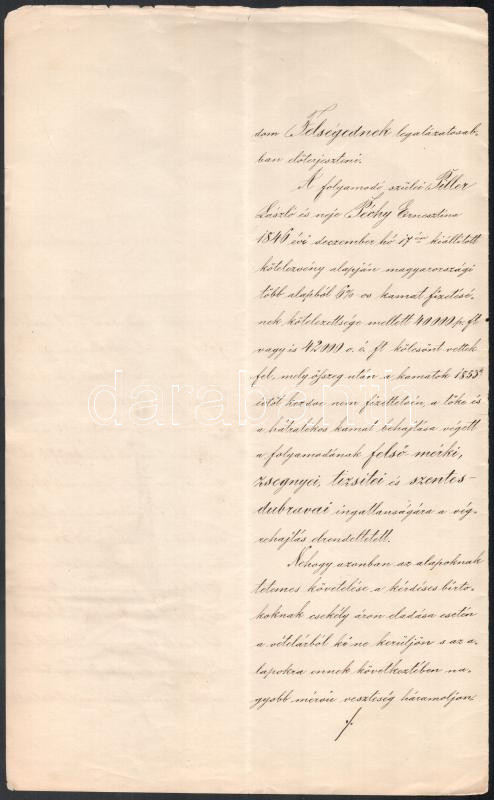 dom Felségednek legalázatosab-
ban előterjeszteni.
A folyamodó szülei Piller
László és neje Péchy Ernesztina
1846 évi deczember hó 17én kiállított
kötelezvény alapján magyarországi
több alapból 6%-os kamat fizetésé-
nek kötelezettsége mellett 40000 p. ft
vagyis 42000 o. é. ft kölcsönt vettek
fel, mely összeg után a kamatok
időtől kezdve nem fizettetvén, a tőke és
a hátralékos kamat behajtása végett
a folyamodónak felső-mérki,
zsegnyei, tizsitei és szentes-
dubravai ingatlanságára a vég-
rehajtás elrendeltetett.
Nehogy azonban az alapoknak
tetemes követelése a kérdéses birto-
koknak csekély áron eladása esetén
a vételárból ki ne kerüljön s az a-
lapokra ennek következtében na-
gyobb mérvü veszteség háramoljon
./.
darabanth.com